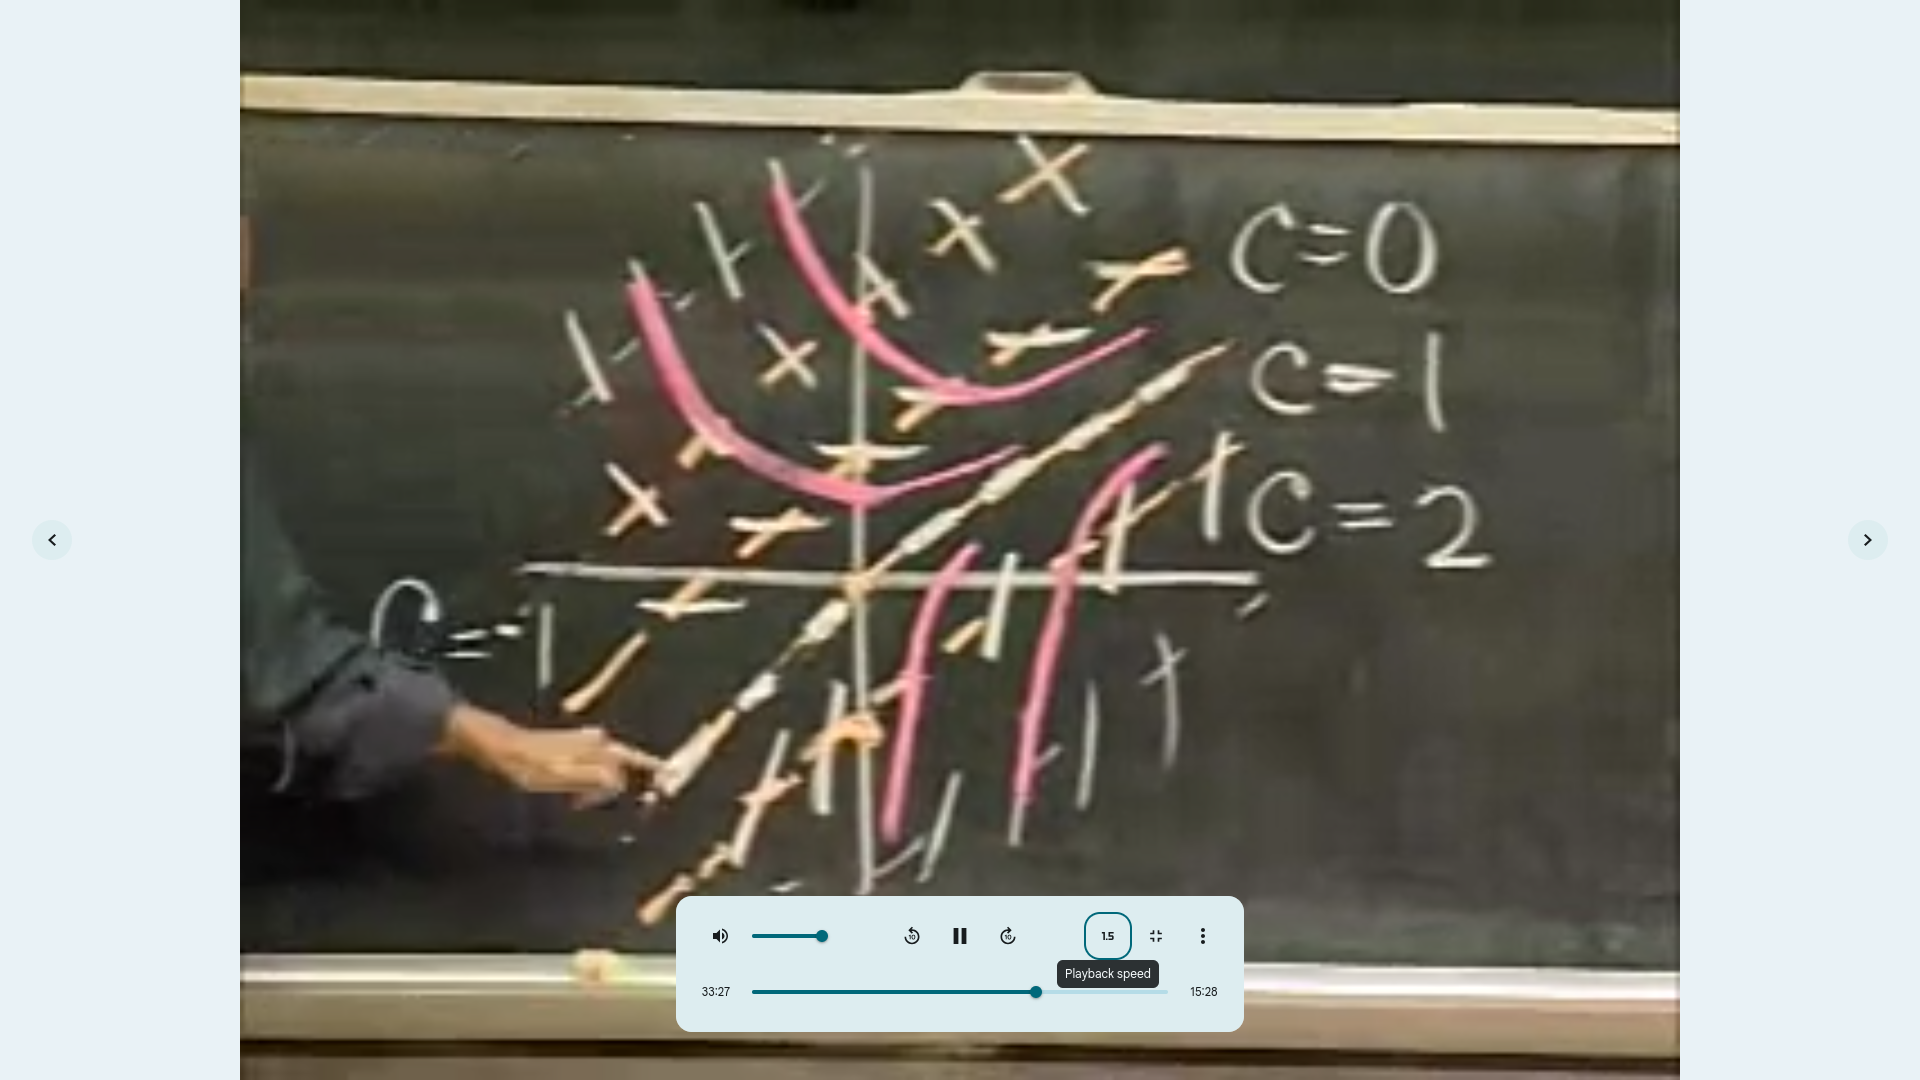 C=0
C=1
C=2
C=-1
10
10
1.5
Playback speed
33:27
15:28